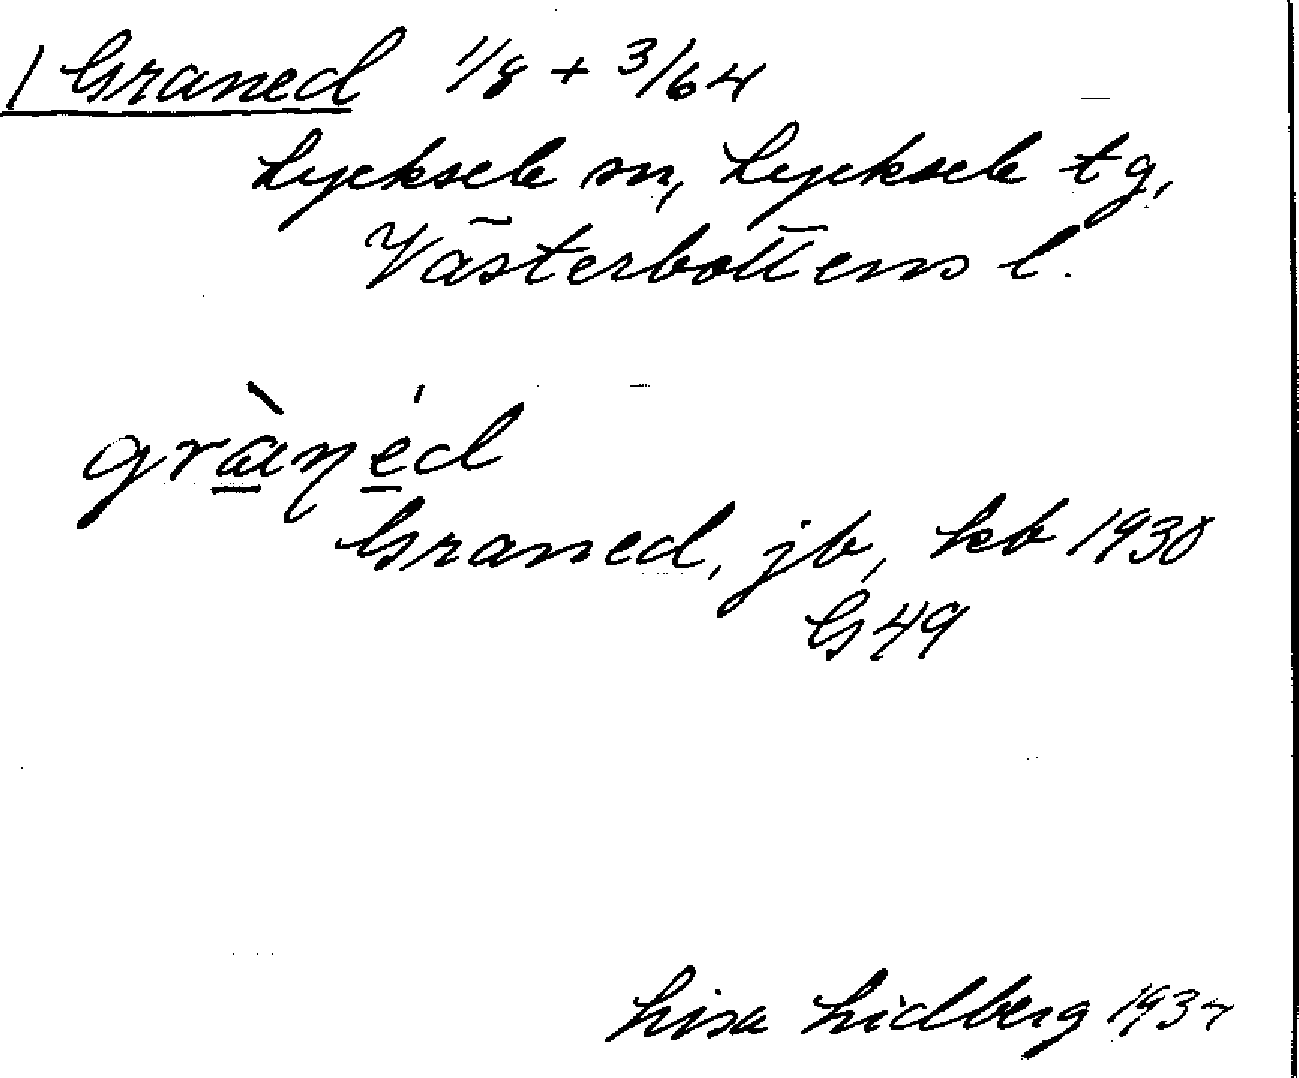 / Graned 1/8 + 3/64
Lycksele sn, Lycksele tg,
Västerbottens l.
grànéd
Graned, jb, kb 1930
G 49
Lisa Lidberg